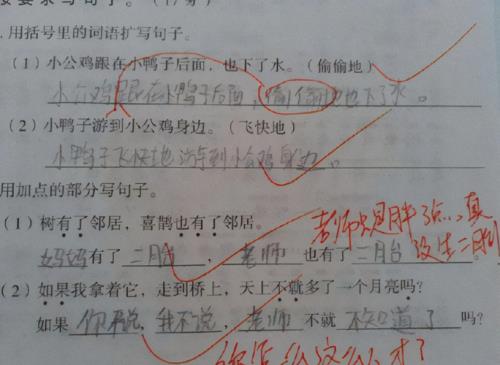 要求写句子。
.用括号里的词语扩写句子。
（1）小公鸡跟在小鸭子后面，也下了水。（偷偷地）
小公鸡跟在小鸭子后面，偷偷地也下了水。
（2）小鸭子游到小公鸡身边。（飞快地）
小鸭子飞快地游到小公鸡身边。
用加点的部分写句子。
（1）树有了邻居，喜鹊也有了邻居。
老师只是胖了点…真
没生二胎
妈妈有了二胎，老师也有了二胎。
（2）如果我拿着它，走到桥上，天上不就多了一个月亮吗？
如果你不说，我不说，老师不就不知道了吗？